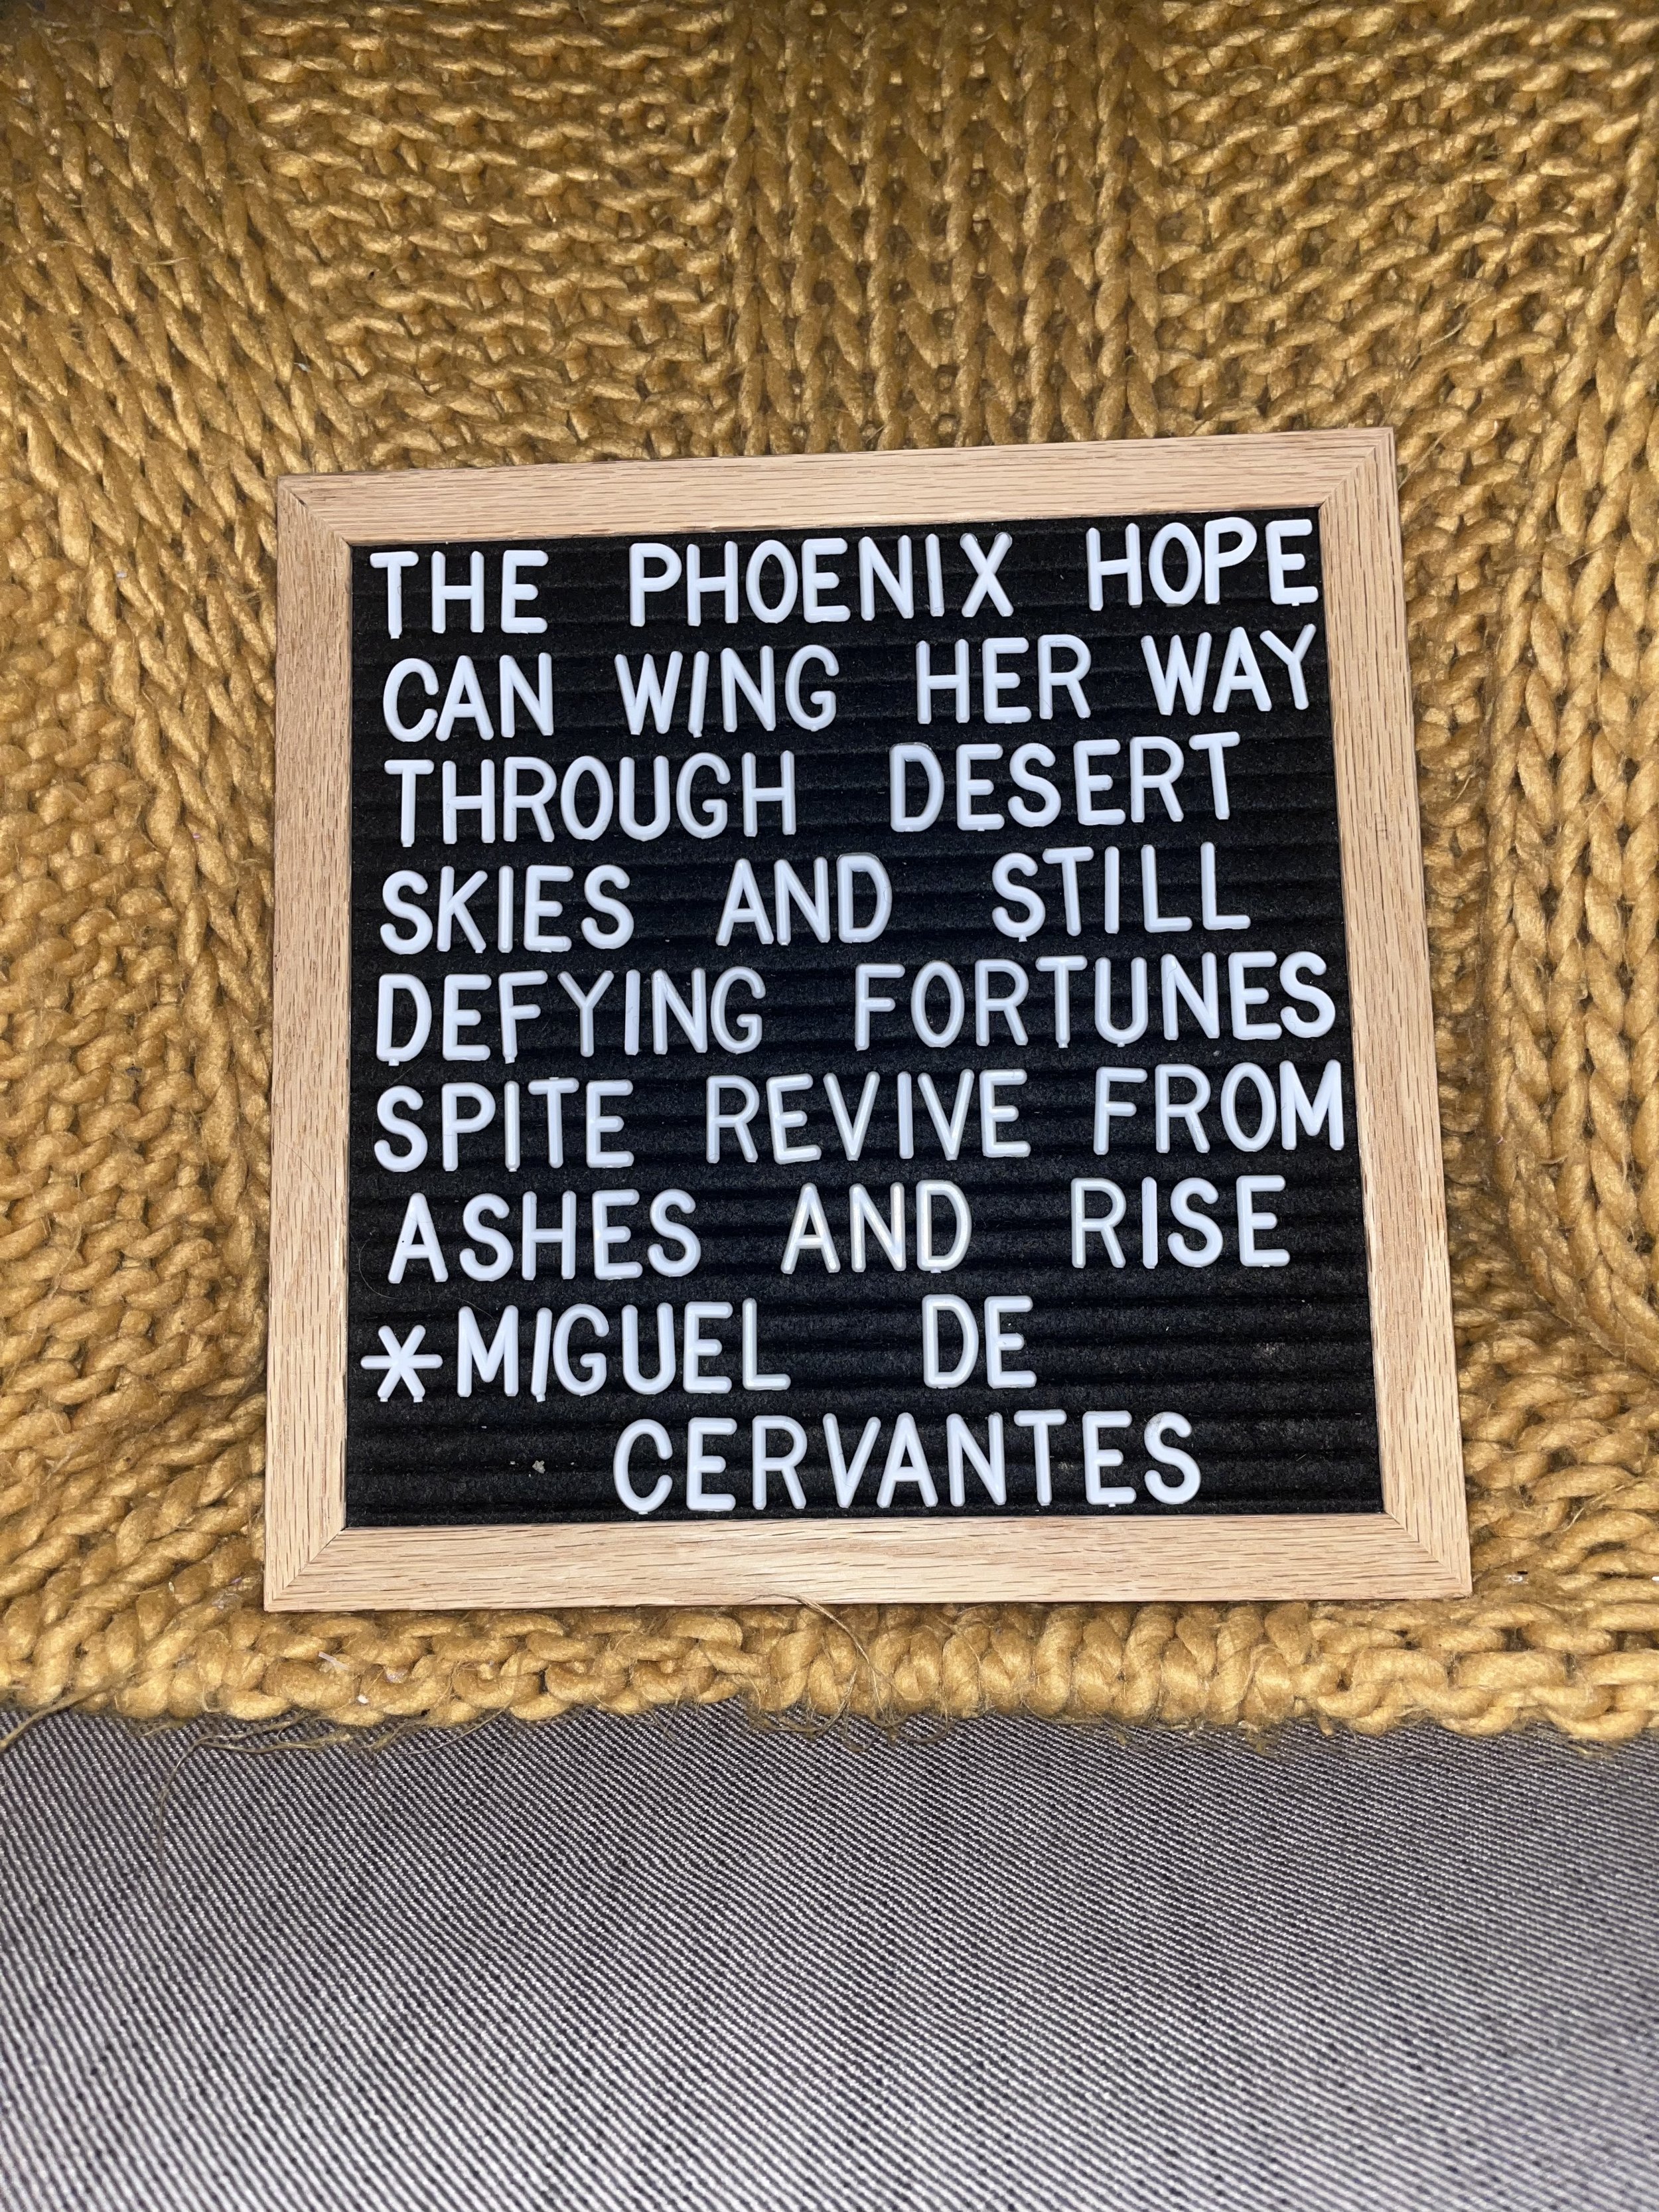 THE PHOENIX HOPE
CAN WING HER WAY
THROUGH DESERT
SKIES AND STILL
DEFYING FORTUNES
SPITE REVIVE FROM
ASHES AND RISE
*MIGUEL DE
CERVANTES